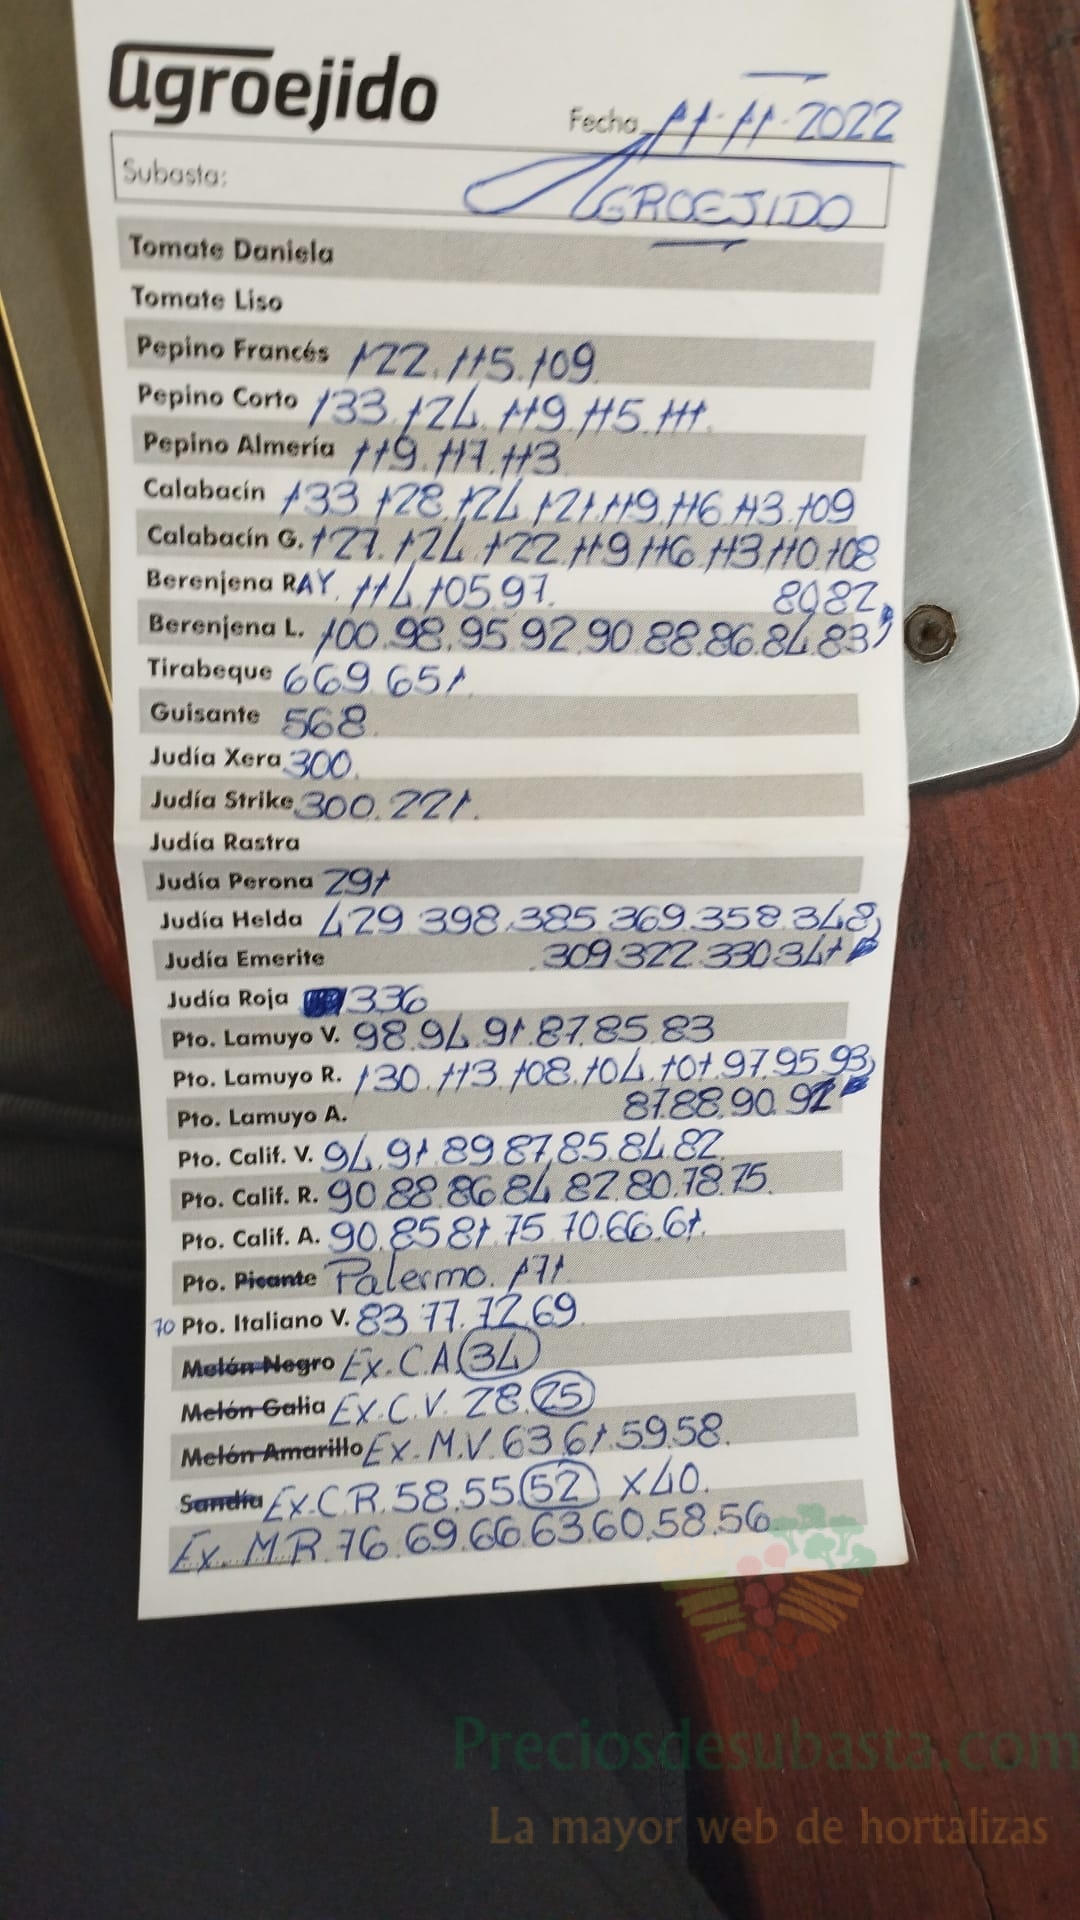 agroejido
Fecha 11-11-2022
Subasta: AGROEJIDO
Tomate Daniela
Tomate Liso
Pepino Francés 122. 115. 109
Pepino Corto 133. 124. 119. 115. 111.
Pepino Almería 119. 117. 113
Calabacín 133 128. 124 121. 119. 116. 113. 109
Calabacín G. 127. 124 122 119 116 113 110 108
Berenjena RAY. 114 105 97. 80 82
Berenjena L. 100. 98. 95. 92. 90 88. 86. 84. 83
Tirabeque 669 651
Guisante 568
Judía Xera 300.
Judía Strike 300. 221.
Judía Rastra
Judía Perona 291
Judía Helda 429 398. 385 369. 358. 348
Judía Emerite 309 322. 330 341
Judía Roja 336
Pto. Lamuyo V. 98. 94. 91. 87. 85. 83
Pto. Lamuyo R. 130. 113 108. 104. 101. 97. 95. 93
Pto. Lamuyo A. 87. 88. 90. 91
Pto. Calif. V. 94. 91. 89 87. 85. 84. 82.
Pto. Calif. R. 90 88. 86. 84 82. 80. 78. 75.
Pto. Calif. A. 90. 85 81. 75 70. 66. 61.
Pto. Picante Palermo. 171
70 Pto. Italiano V. 83 77. 72 69.
Melón Negro Ex. C.A. 34
Melón Galia Ex. C.V. 28. 25
Melón Amarillo Ex. M.V. 63 61. 59. 58.
Sandía Ex. C.R. 58. 55 52 x40.
Ex. M.R. 76. 69. 66. 63. 60. 58. 56
Preciosdesubasta.com
La mayor web de hortalizas